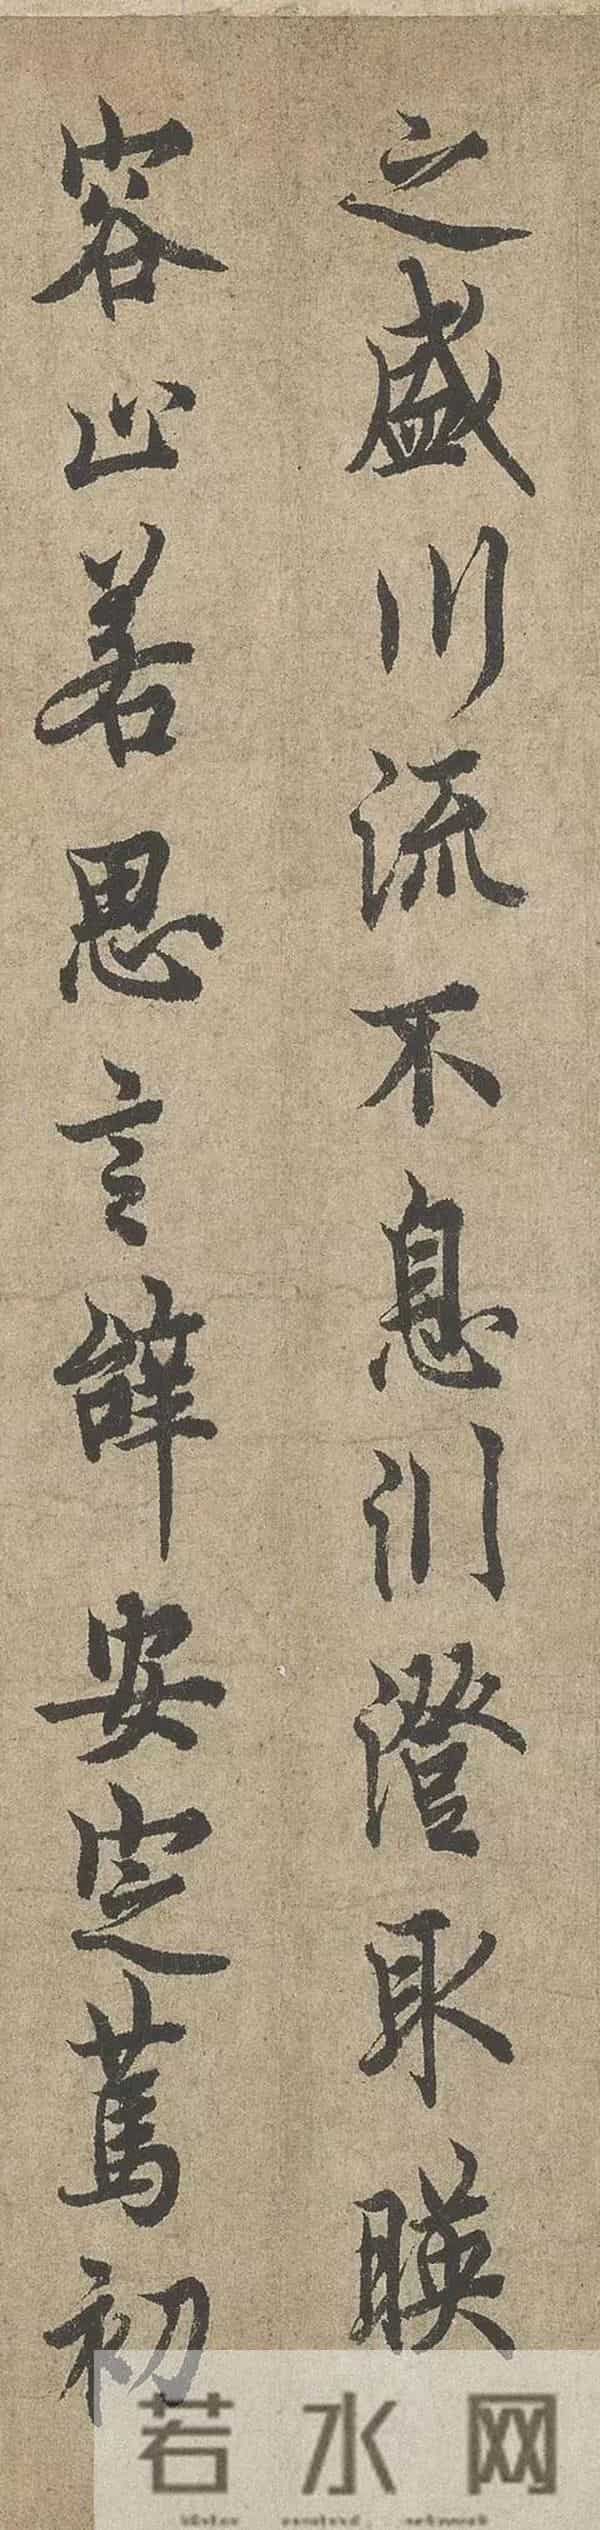 之盛川流不息淵澄取暎
容止若思言辝安定篤初
若水网